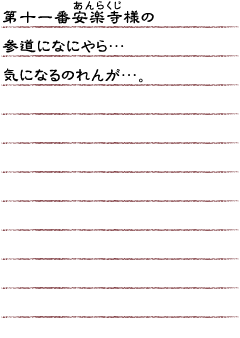 あんらくじ
第十一番安楽寺様の
参道になにやら…
気になるのれんが…。